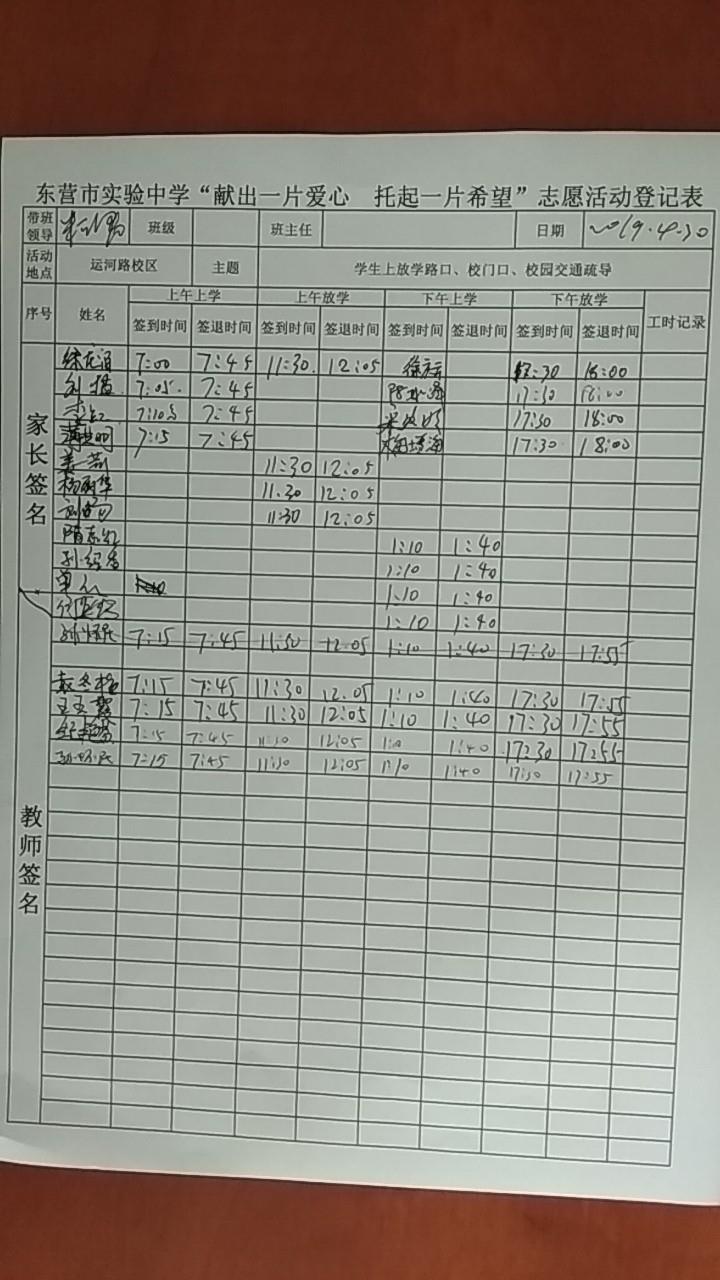 东营市实验中学“献出一片爱心 托起一片希望”志愿活动登记表
带班领导 班级 班主任 日期 2019.4.30
活动地点 运河路校区 主题 学生上放学路口、校门口、校园交通疏导
序号 姓名 上午上学 上午放学 下午上学 下午放学 工时记录
签到时间 签退时间 签到时间 签退时间 签到时间 签退时间 签到时间 签退时间
家长签名
7:00 7:45 11:30 12:05 17:30 18:00
7:05 7:45 17:30 18:00
7:10 7:45 17:30 18:00
7:15 7:45 17:30 18:00
11:30 12:05
杨丽华 11.30 12:05
11:30 12:05
隋志红 1:10 1:40
1:10 1:40
1:10 1:40
1:10 1:40
7:15 7:45 11:30 12.05 1:10 1:40 17:30 17:55
教师签名
7:15 7:45 11:30 12.05 1:10 1:40 17:30 17:55
7:15 7:45 11:30 12:05 1:10 1:40 17:30 17:55
7:15 7:45 11:30 12:05 1:10 1:40 17:30 17:55
7:15 7:45 11:30 12:05 1:10 1:40 17:30 17:55